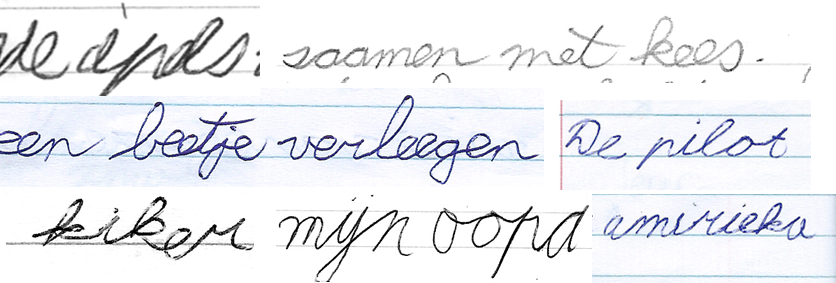 de opds. saamen met kees.
een beetje verleegen De pilot
kiker mijn oopa amirieka